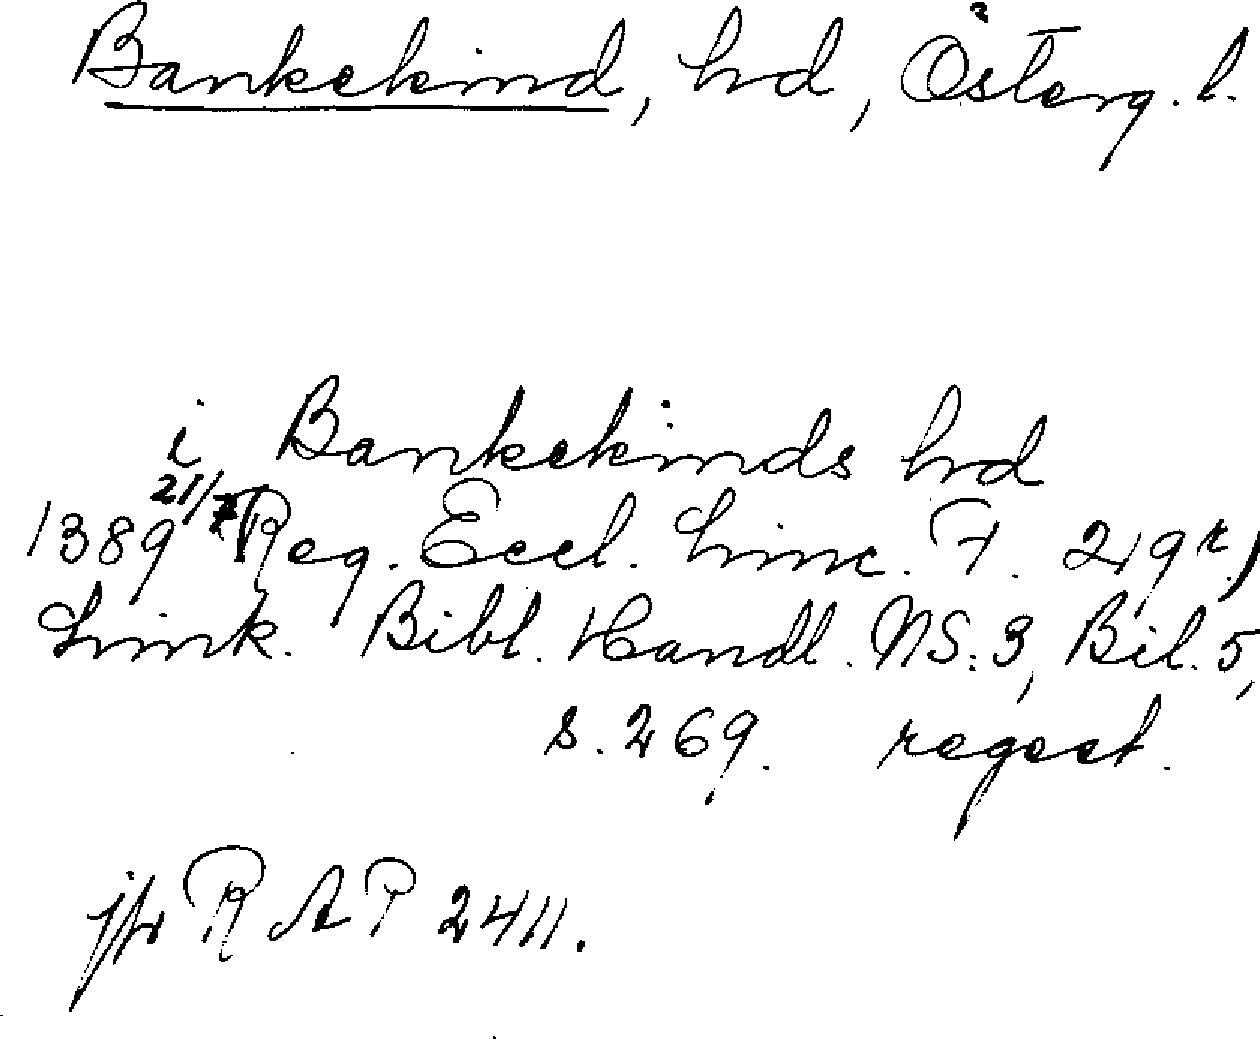 Bankekind, hd, Österg. l.
i Bankekinds hd
1389 21/7 Reg. Eccl. Linc. F. 219r,
Link. Bibl. Handl. NS:3, Bil. 5,
s. 269. regest.
jfr RAP 2411.